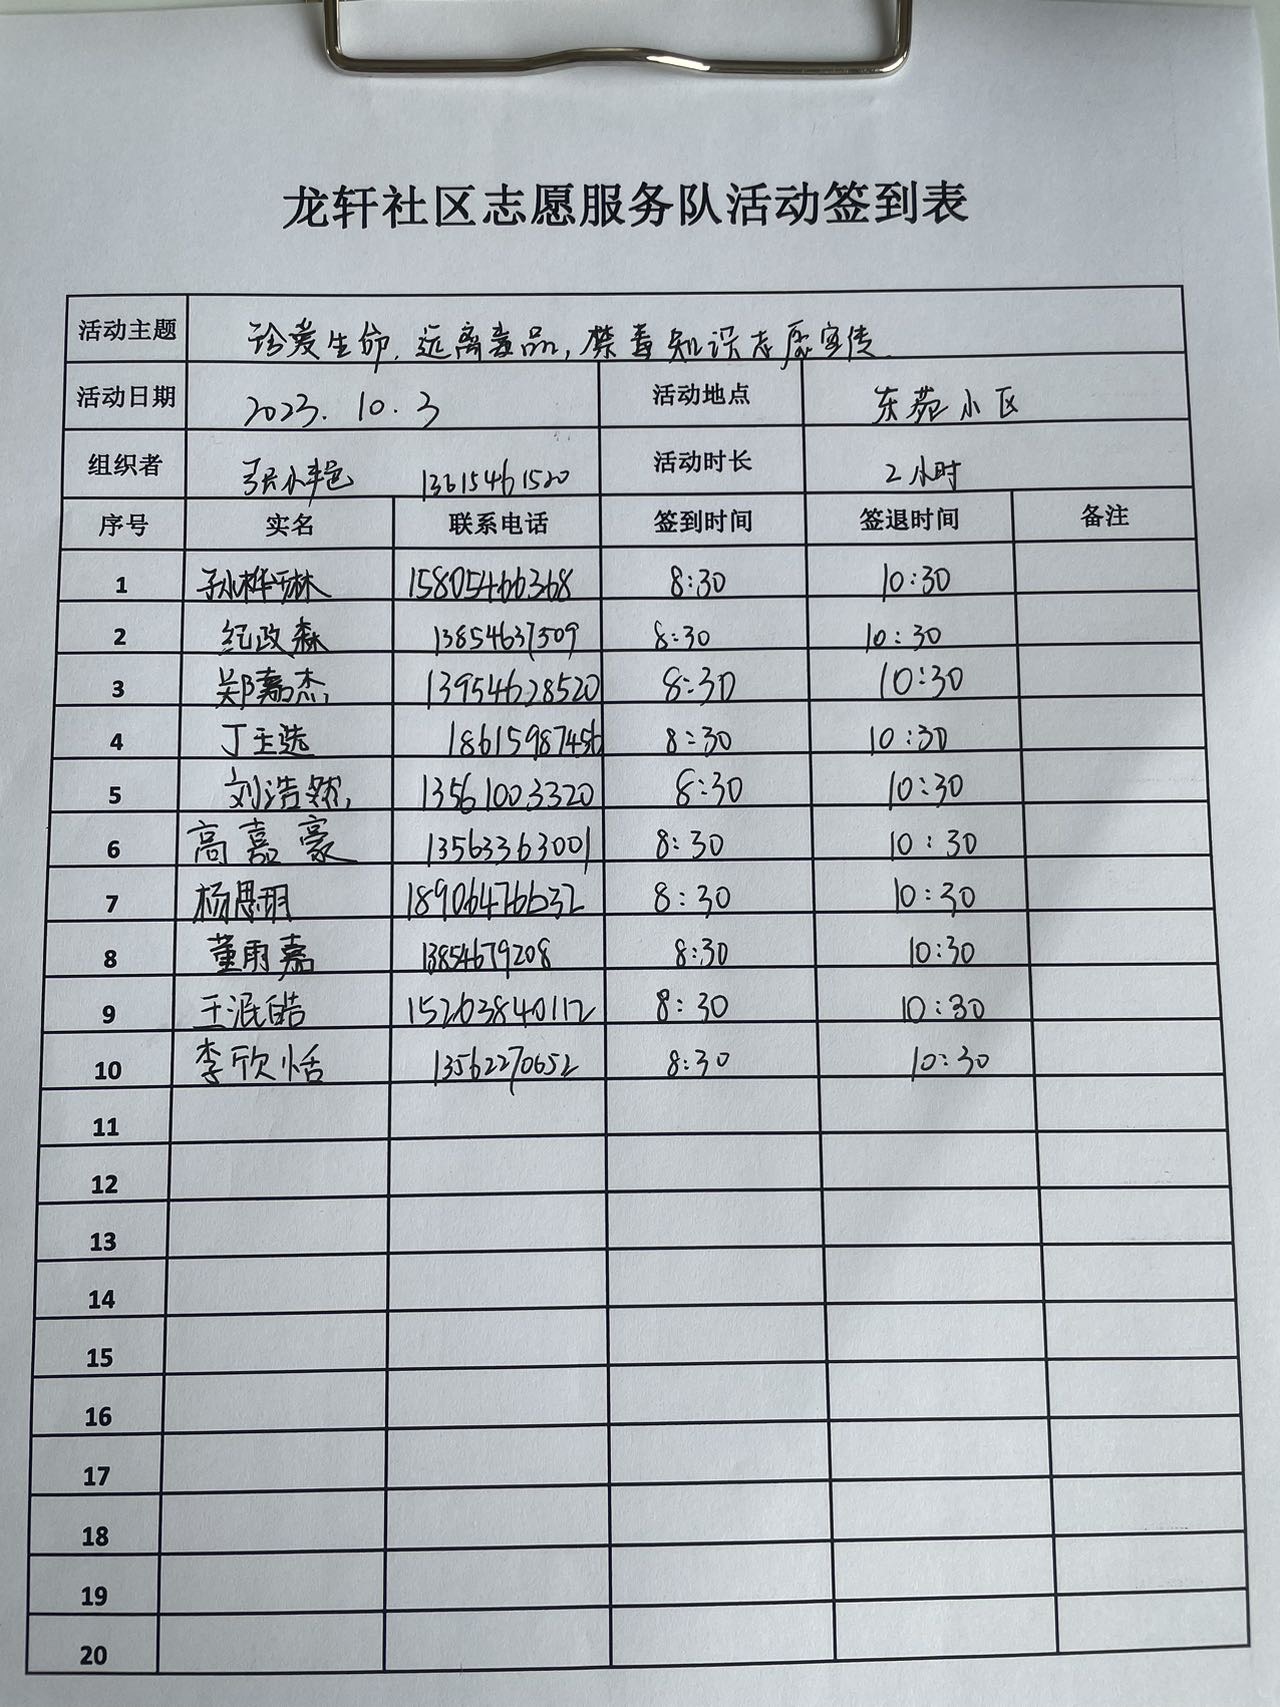 龙轩社区志愿服务队活动签到表
活动主题 珍爱生命,远离毒品,禁毒知识志愿宣传.
活动日期 2023.10.3 活动地点 东苑小区
组织者 张小艳 13615461520 活动时长 2小时
序号 实名 联系电话 签到时间 签退时间 备注
1 孙桦琳 15805466368 8:30 10:30
2 纪政森 13854637509 8:30 10:30
3 郑嘉杰 13954628520 8:30 10:30
4 丁玉选 18615987456 8:30 10:30
5 刘浩然 13561003320 8:30 10:30
6 高嘉豪 13563363001 8:30 10:30
7 杨 18906476632 8:30 10:30
8 董雨嘉 13854679208 8:30 10:30
9 王泯皓 15263840112 8:30 10:30
10 李欣恬 13562270652 8:30 10:30
11
12
13
14
15
16
17
18
19
20